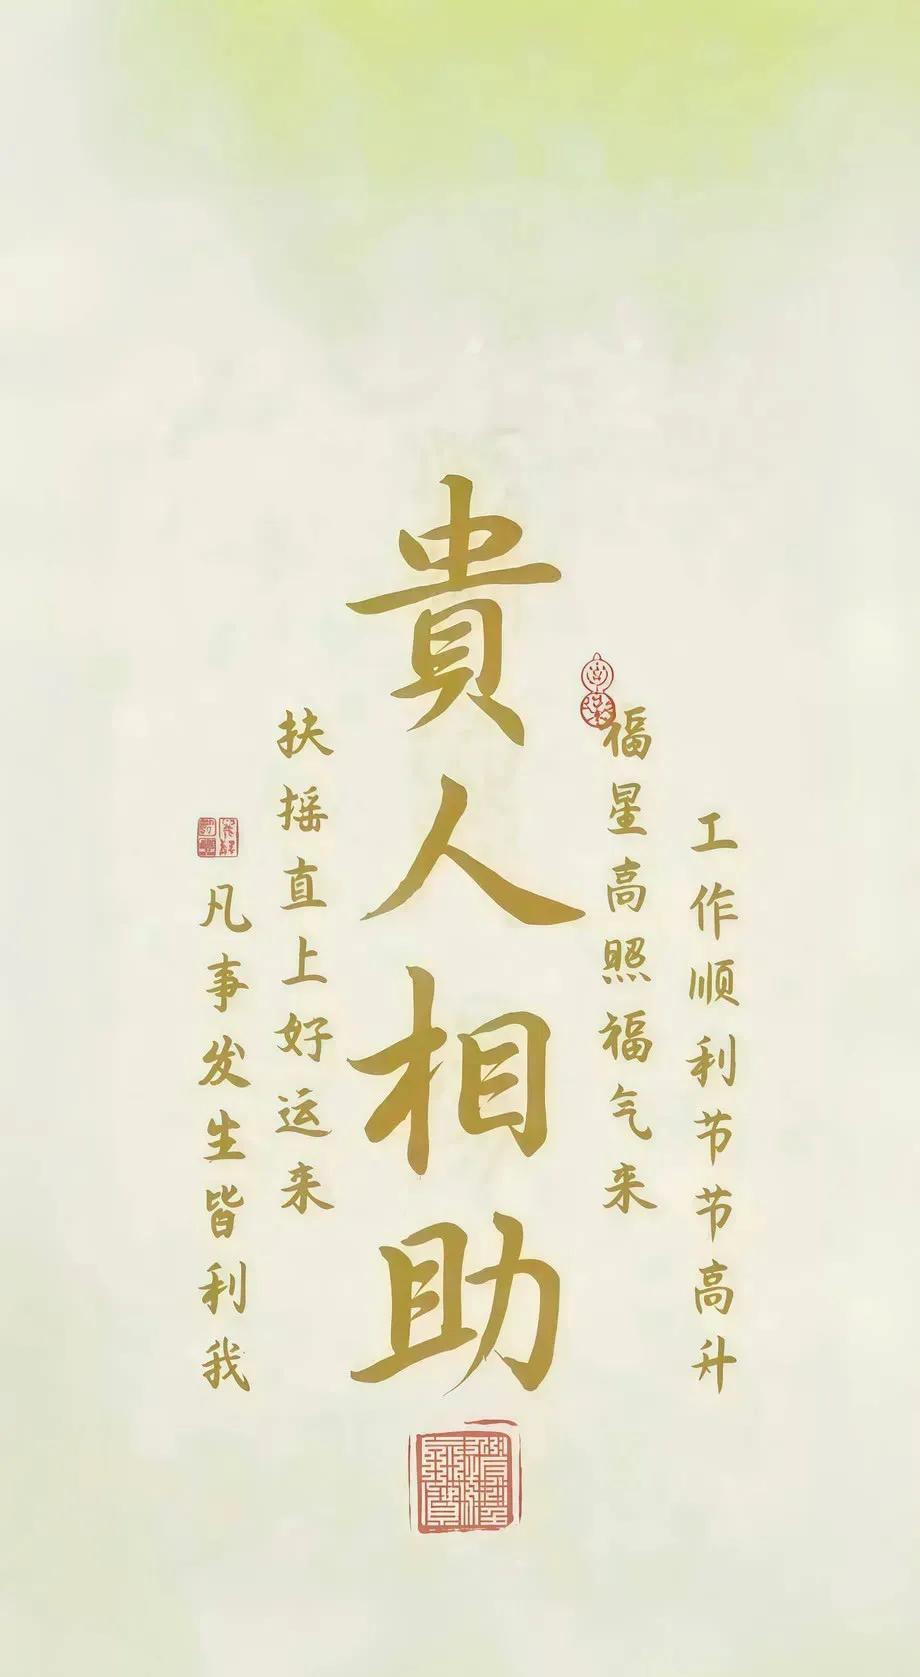 工作顺利节节高升
福星高照福气来
貴人相助
扶摇直上好运来
凡事发生皆利我